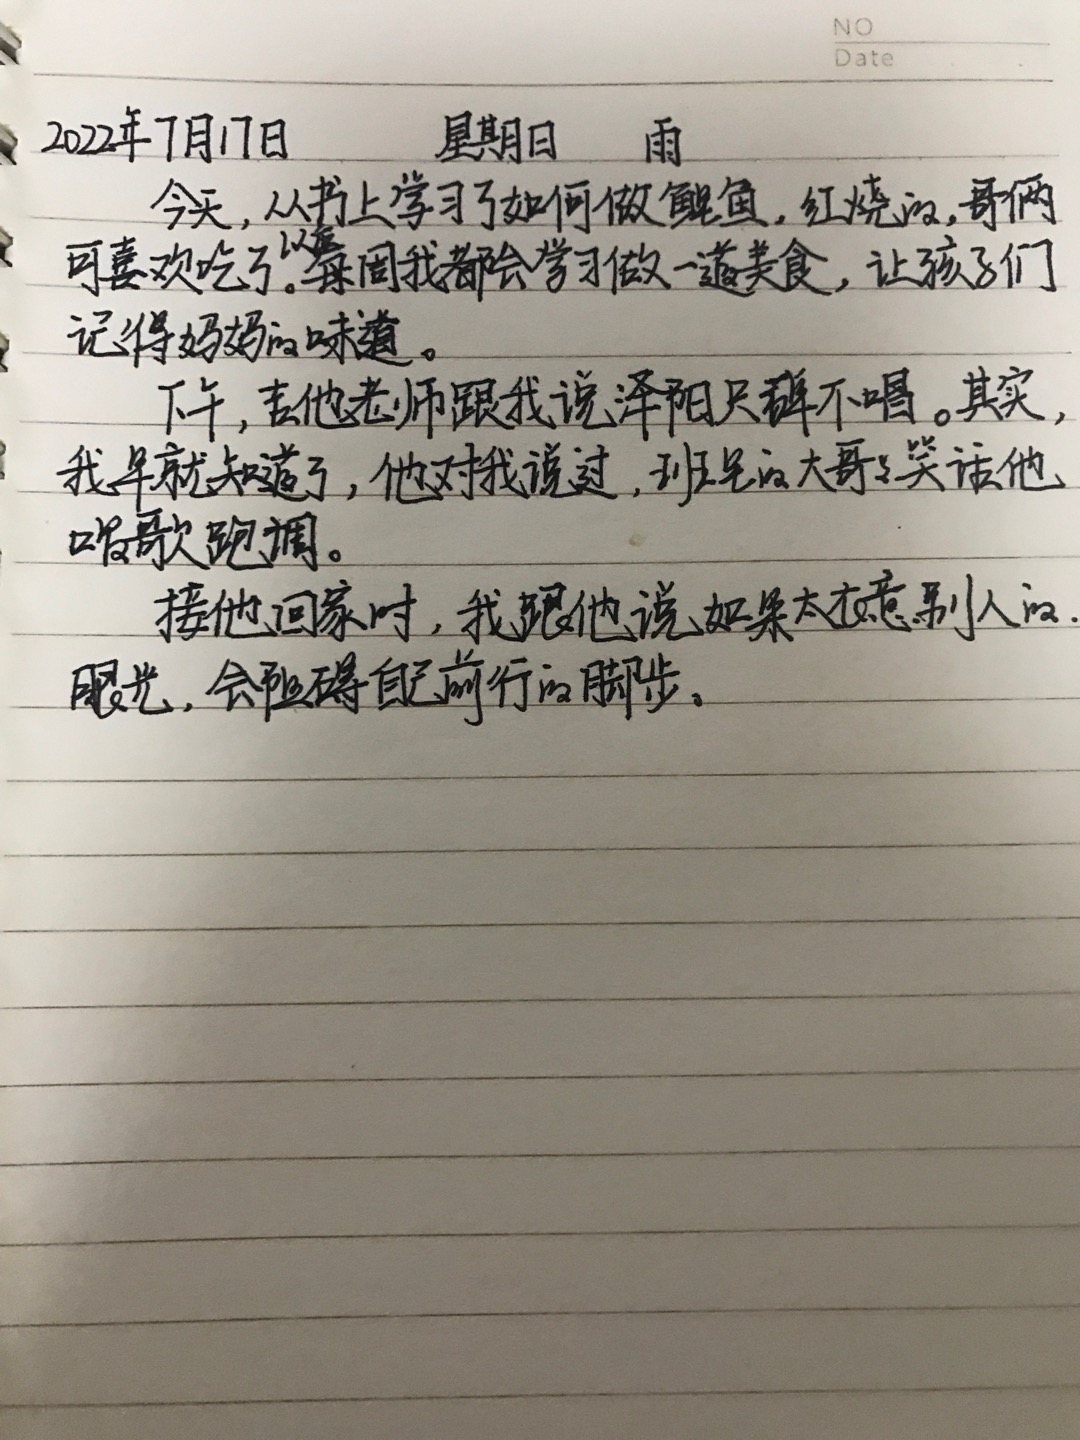 NO
Date
2022年7月17日 星期日 雨
今天，从书上学习了如何做鲲鱼，红烧的，哥俩
可喜欢吃了。以后每周我都会学习做一道美食，让孩子们
记得妈妈的味道。
下午，吉他老师跟我说泽阳只弹不唱。其实，
我早就知道了，他对我说过，班里的大哥哥笑话他
唱歌跑调。
接他回家时，我跟他说如果太在意别人的
眼光，会阻碍自己前行的脚步。